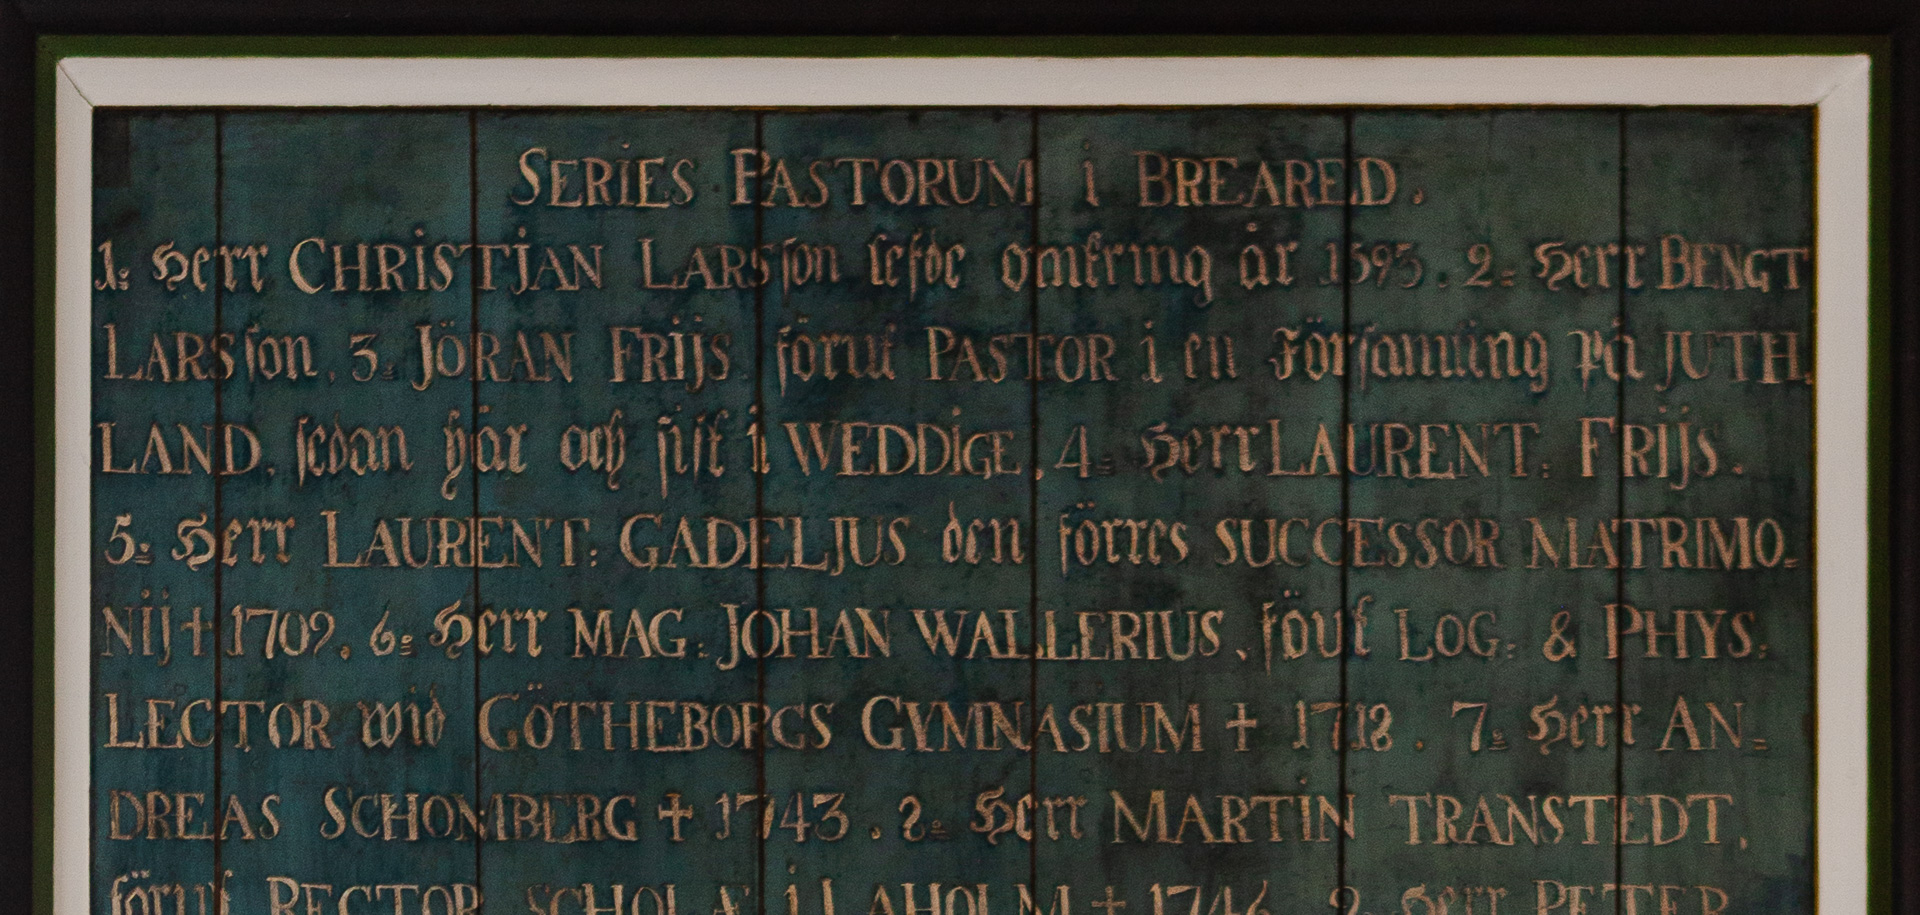 SERIES PASTORUM i BREARED.
1: Herr CHRISTJAN LARSson lefde omkring år 1593. 2: Herr BENGT
LARSson. 3: JÖRAN FRIJS förut PASTOR i en Församling på JUTH.
LAND, sedan här och sist i WEDDIGE. 4: Herr LAURENT: FRIJS.
5: Herr LAURENT: GADELJUS den förres SUCCESSOR MATRIMO=
NIJ † 1709. 6: Herr MAG: JOHAN WALLERIUS, föut LOG: & PHYS:
LECTOR wid GÖTHEBORGS GYMNASIUM † 1718. 7: Herr AN=
DREAS SCHOMBERG † 1743. 8: Herr MARTIN TRANSTEDT,
förut RECTOR SCHOLÆ i LAHOLM † 1746. 9: Herr PETER